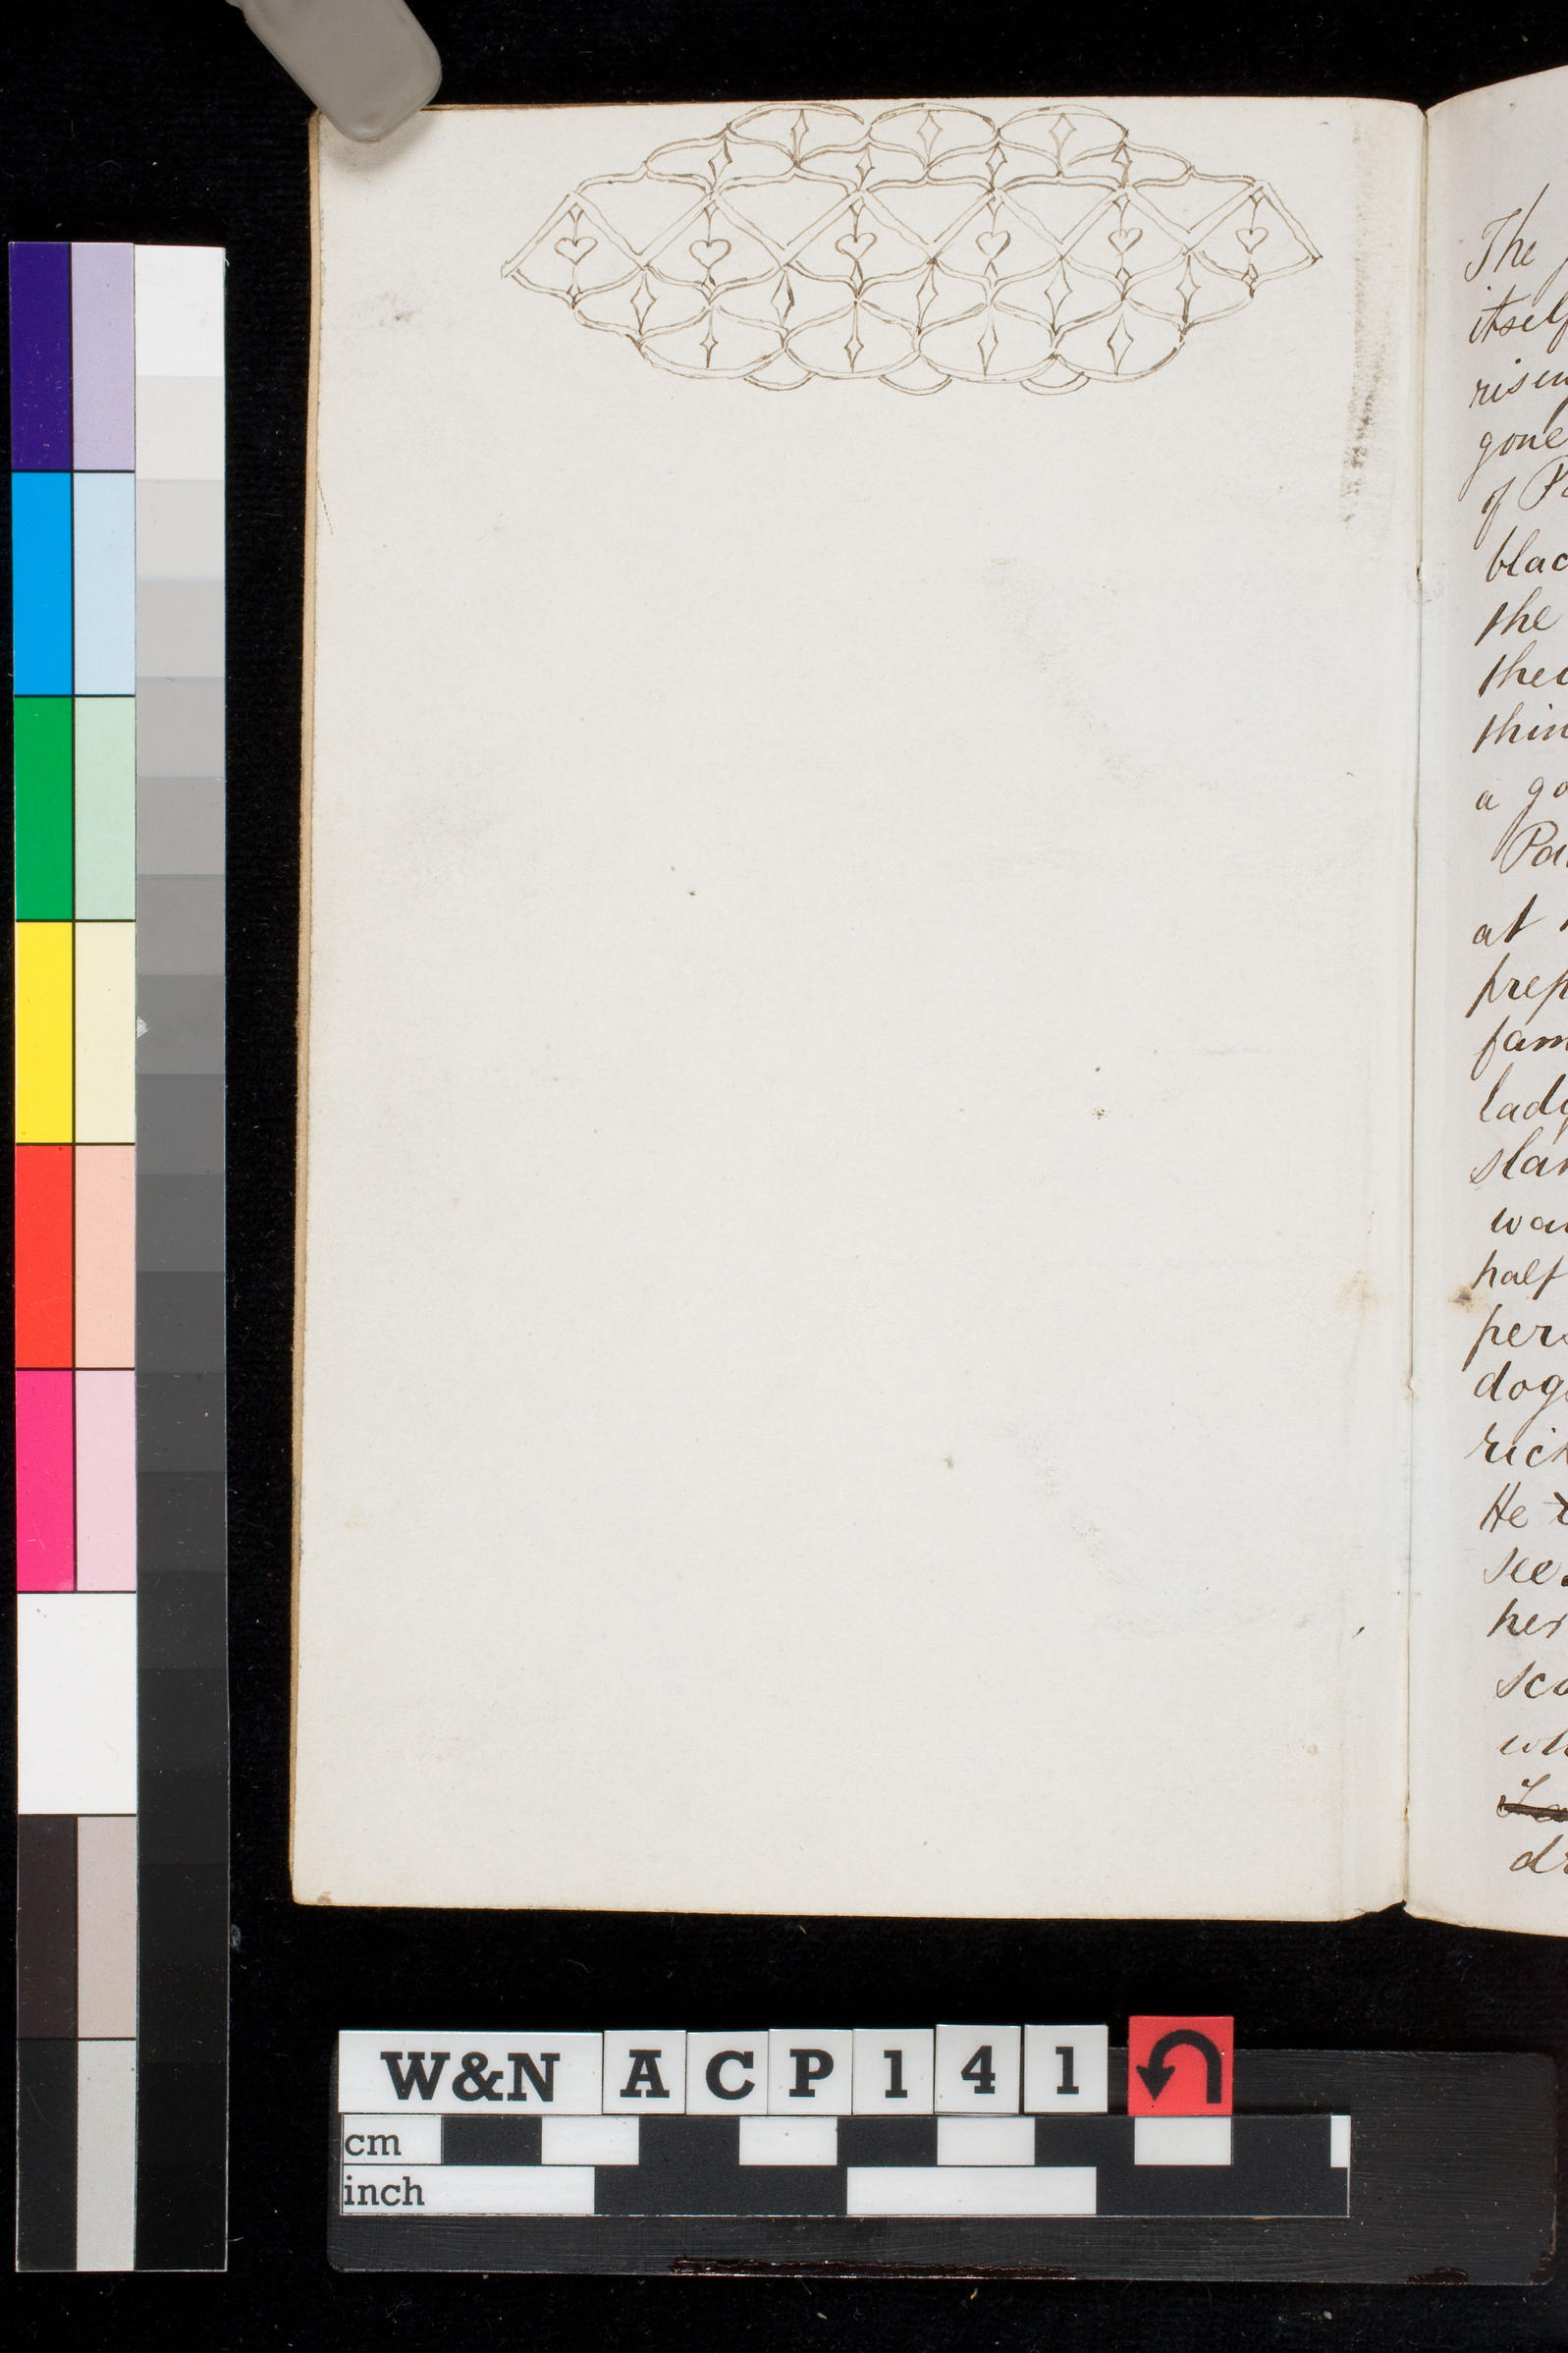 The
itself
risen
gone
of Pa
blac
the
thei
thin
a go
Pa
at
prep
fam
lady
slan
wa
half
pers
dogs
rich
He
see.
her
sco
wh
dr
W&N A C P 1 4 1
cm
inch